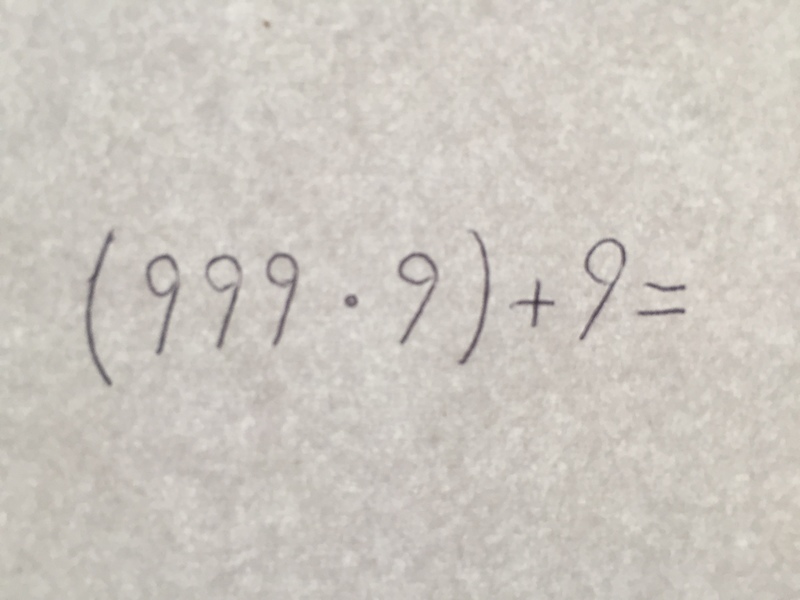 (999·9)+9=